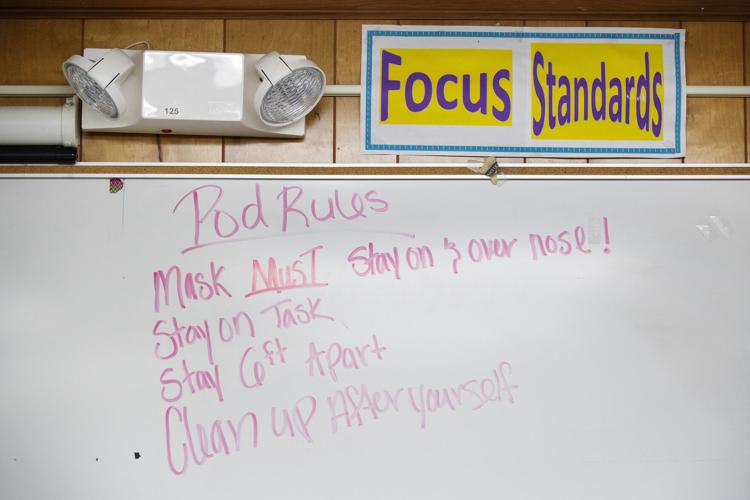 125
Focus Standards
Pod Rules
Mask MUST Stay on & over nose!
Stay on Task
Stay 6ft Apart
Clean up After yourself